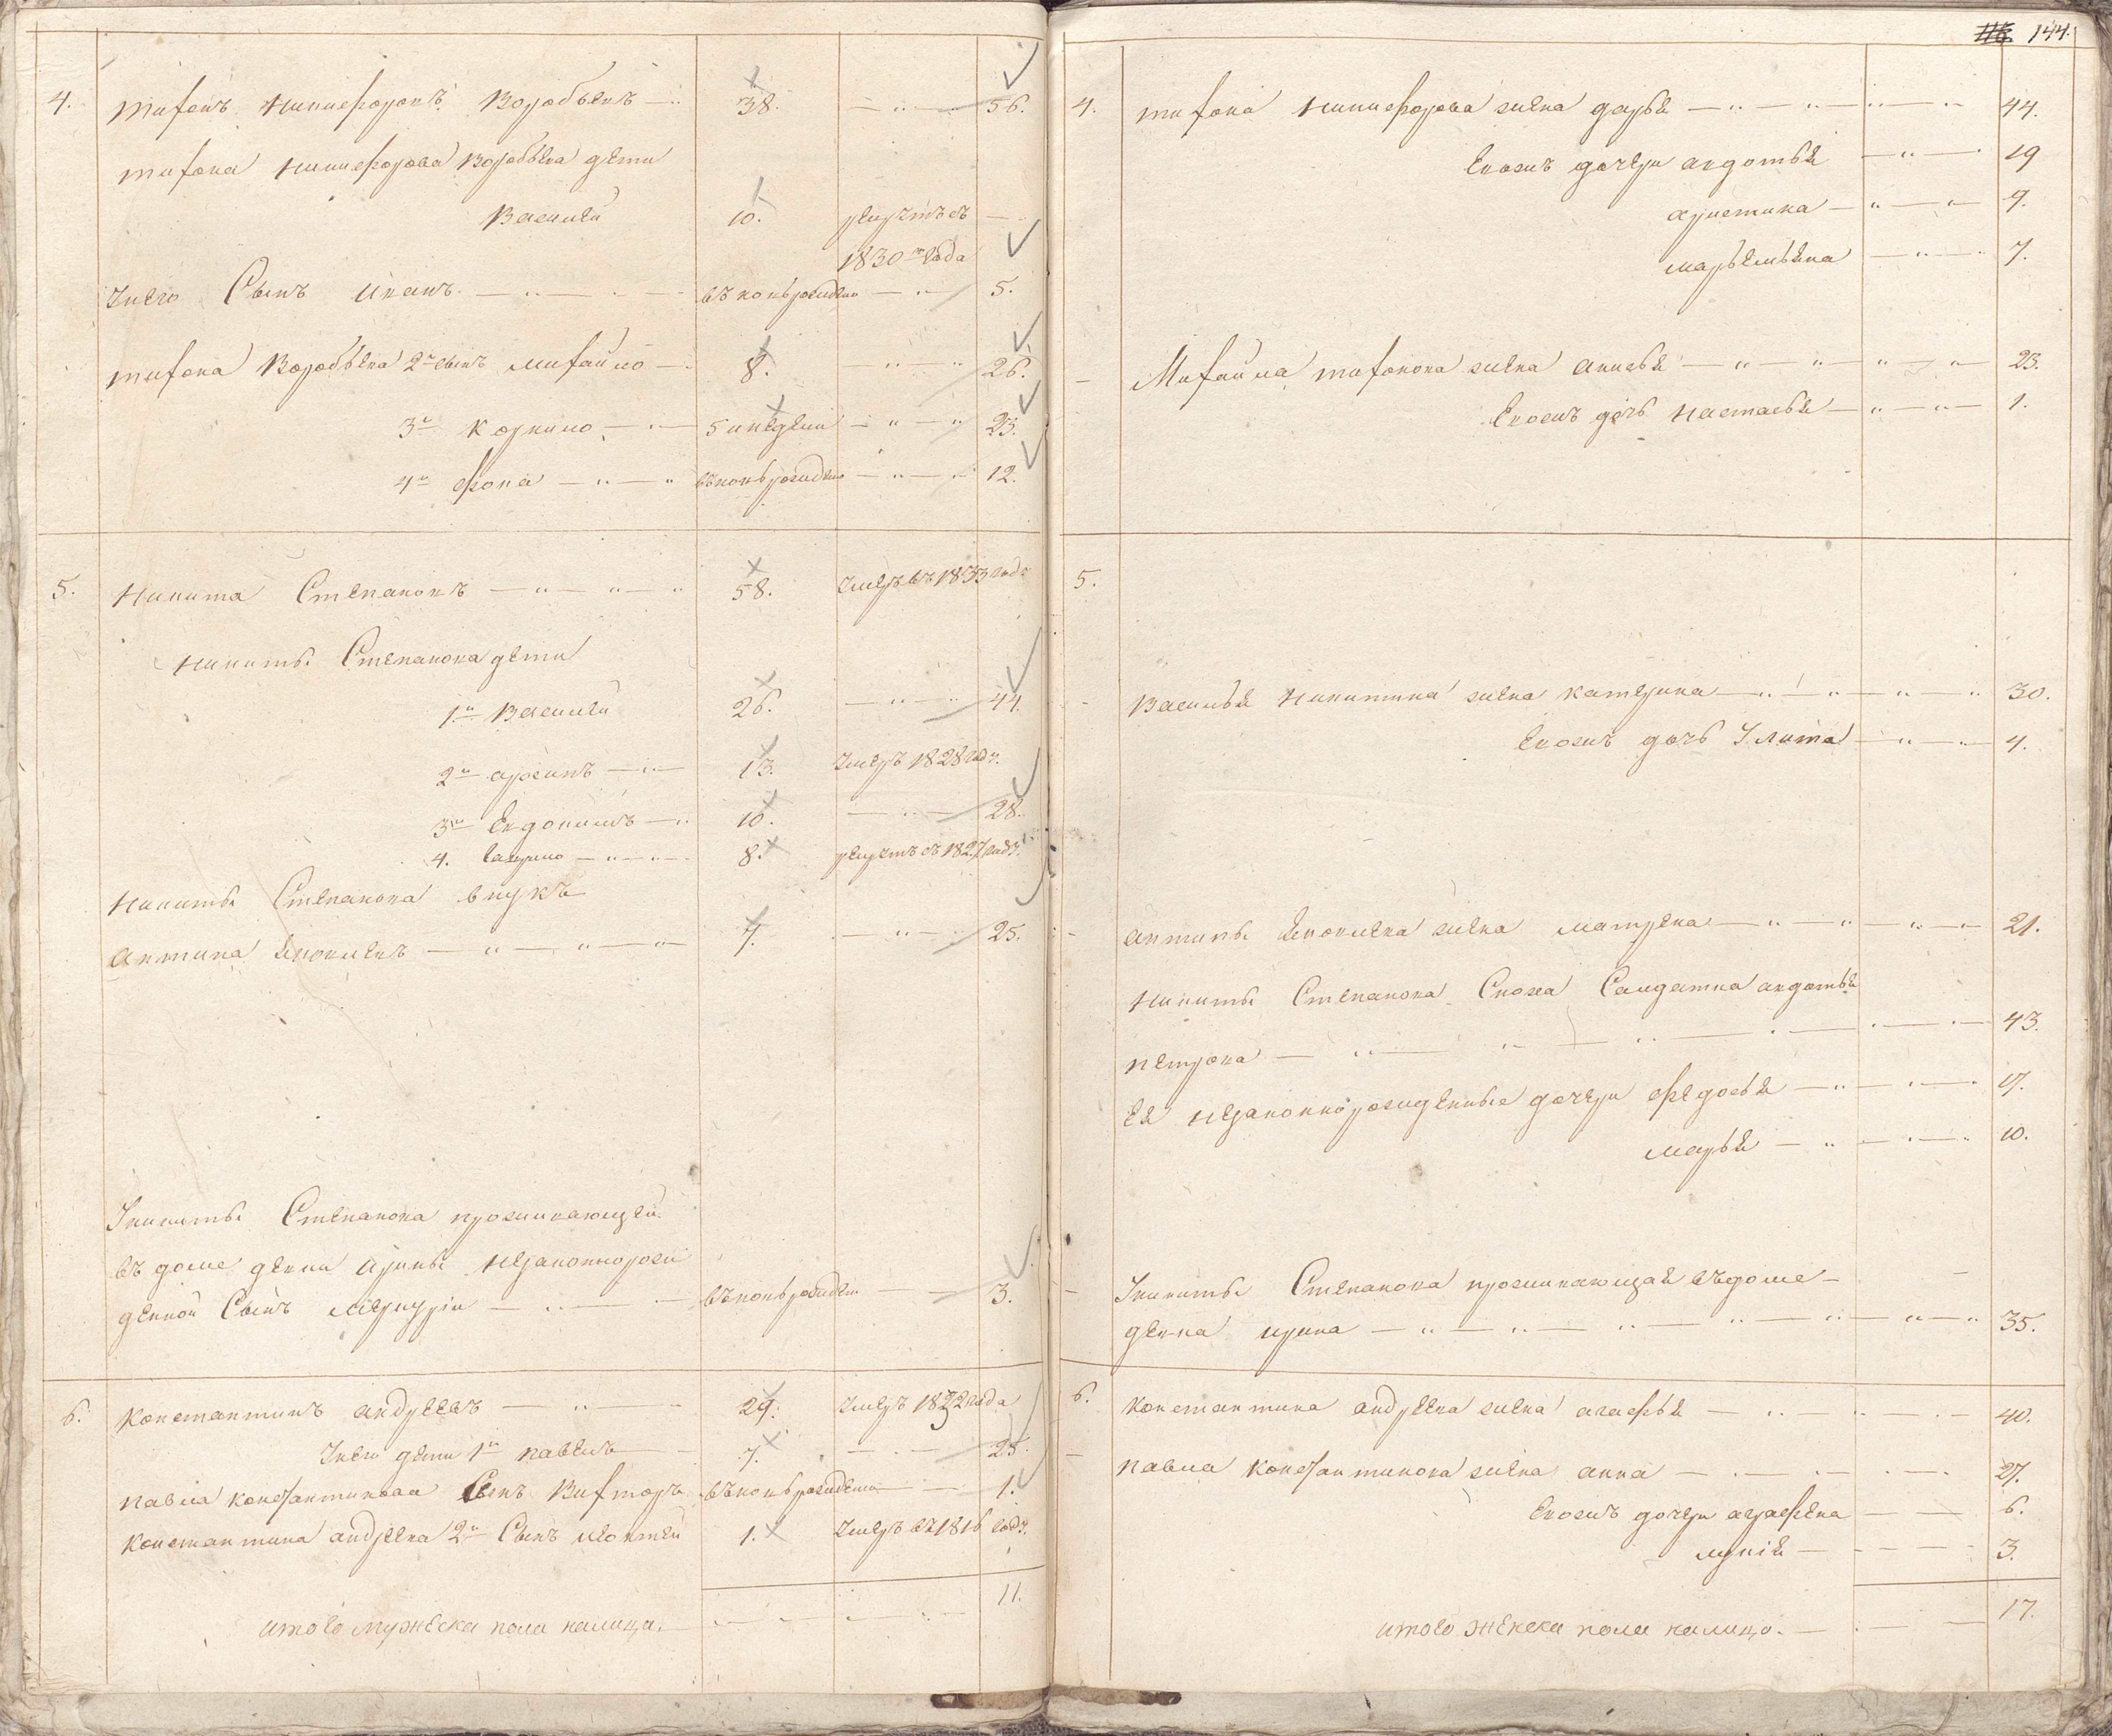 4. Тихонъ Никифоровъ Воробьевъ 38. 56.
Тихона Никифорова Воробьева дети
Василей 10. рекрутъ съ
1830го года
У него Сынъ Иванъ вновь рожденъ 5.
Тихона Воробьева 2й сынъ Михайло 8. 26.
3й Корнило 5 недель 23.
4й Фока вновь рожденъ 12.
5. Никита Степановъ 58. умеръ въ 1833 году
Никиты Степанова дети
1й Василей 26. 44.
2й 13. умеръ 1828 году.
3й Евдокимъ 10. 28.
4. Гаврило 8. рекрутъ съ 1827 году.
Никиты Степанова внукъ
Антипа Яковлевъ 7. 25.
У никиты Степанова проживающей
въ доме девки Ирины незаконнорож
денной Сынъ Меркурiи вновь рожденъ 3.
6. Константинъ андреевъ 29. умеръ 1832 года
У него дети 1й павелъ 7. 25.
павла константинова Сынъ Викторъ вновь рожденъ 1.
константина андреева 2й Сынъ 1. умеръ въ 1816 году.
11.
итого мужеска пола налицо.
116 144.
4. тихона Никифорова жена дарья 44.
Евожъ дочери авдотья 19
христина 9.
марьемьяна 7.
Михайла тихонова жена анисья 23.
Евожъ дочь настасья 1.
5.
Василья Никитина жена катерина 30.
Евожъ дочь Улита 4.
антипы яковлева жена матрена 21.
никиты Степанова Сноха Салдатка авдотья
петрова 43.
Ея незаконнорожденные дочери федосья 17.
марья 10.
У никиты Степанова проживающая въ доме
девка ирина 35.
6. константина андреева жена агафья 40.
павла константинова жена анна 27.
Евожъ дочери аграфена 6.
лукiя 3.
17.
итого женска пола налицо.